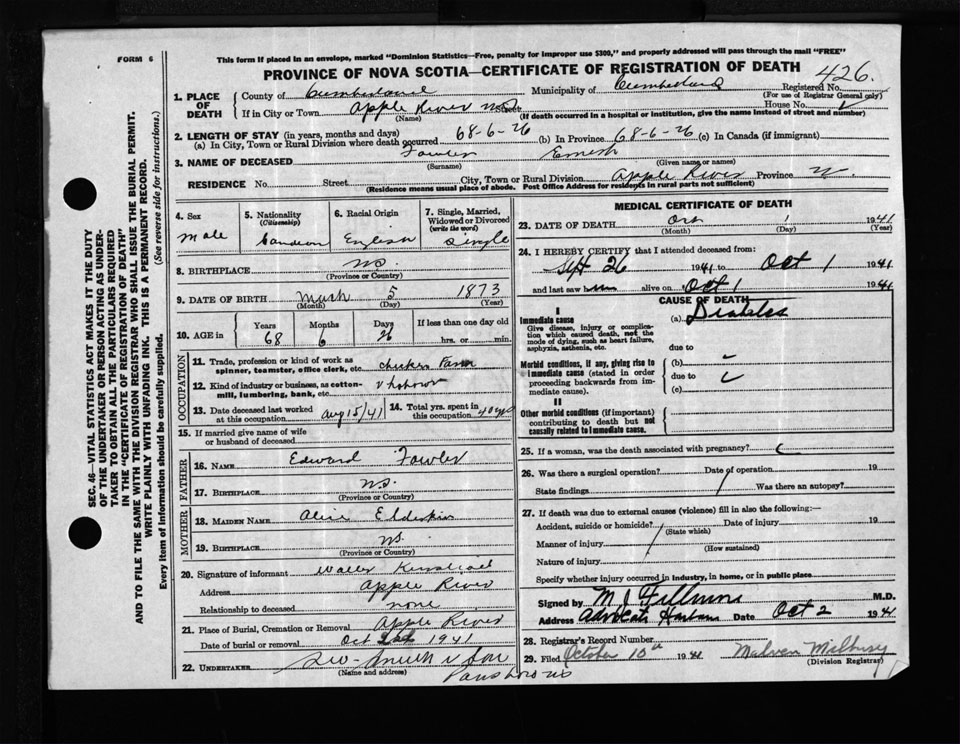 FORM 6
This form if placed in an envelope, marked "Dominion Statistics—Free, penalty for improper use $300," and properly addressed will pass through the mail "FREE"
PROVINCE OF NOVA SCOTIA—CERTIFICATE OF REGISTRATION OF DEATH
426.
SEC. 46—VITAL STATISTICS ACT MAKES IT THE DUTY
OF THE UNDERTAKER OR PERSON ACTING AS UNDER-
TAKER TO OBTAIN ALL THE PARTICULARS REQUIRED
IN THE "CERTIFICATE OF REGISTRATION OF DEATH"
AND TO FILE THE SAME WITH THE DIVISION REGISTRAR WHO SHALL ISSUE THE BURIAL PERMIT.
WRITE PLAINLY WITH UNFADING INK. THIS IS A PERMANENT RECORD.
Every item of information should be carefully supplied. (See reverse side for instructions.)
1. PLACE OF DEATH
County of Cumberland Municipality of Cumberland Registered No.
(For use of Registrar General only)
If in City or Town Apple River NS Street House No.
(Name) (If death occurred in a hospital or institution, give the name instead of street and number)
2. LENGTH OF STAY (in years, months and days)
(a) In City, Town or Rural Division where death occurred 68-6-26 (b) In Province 68-6-26 (c) In Canada (if immigrant)
3. NAME OF DECEASED Fowler Ernest
(Surname) (Given name or names)
RESIDENCE No. Street City, Town or Rural Division Apple River Province
(Residence means usual place of abode. Post Office Address for residents in rural parts not sufficient)
4. Sex Male
5. Nationality (Citizenship) Canadian
6. Racial Origin English
7. Single, Married, Widowed or Divorced (write the word) Single
8. BIRTHPLACE NS.
(Province or Country)
9. DATE OF BIRTH March 5 1873
(Month) (Day) (Year)
10. AGE in Years 68 Months 6 Days 26 If less than one day old hrs. or min.
OCCUPATION
11. Trade, profession or kind of work as spinner, teamster, office clerk, etc. Farm
12. Kind of industry or business, as cotton-mill, lumbering, bank, etc.
13. Date deceased last worked at this occupation Aug 15/41
14. Total yrs. spent in this occupation 40 yrs
15. If married give name of wife or husband of deceased
FATHER
16. NAME Edward Fowler
17. BIRTHPLACE NS.
(Province or Country)
MOTHER
18. MAIDEN NAME Alice Elderkin
19. BIRTHPLACE NS.
(Province or Country)
20. Signature of informant
Address Apple River
Relationship to deceased none
21. Place of Burial, Cremation or Removal Apple River
Date of burial or removal Oct 1941
22. UNDERTAKER Smith & Son
(Name and address)
MEDICAL CERTIFICATE OF DEATH
23. DATE OF DEATH Oct 1 1941
(Month) (Day) (Year)
24. I HEREBY CERTIFY that I attended deceased from:
Sept 26 1941 to Oct 1 1941
and last saw h alive on Oct 1 1941
CAUSE OF DEATH
I
Immediate cause (a) Diabetes
Give disease, injury or complication which caused death, not the mode of dying, such as heart failure, asphyxia, asthenia, etc.
due to
Morbid conditions, if any, giving rise to immediate cause (stated in order proceeding backwards from immediate cause).
(b)
due to
(c)
II
Other morbid conditions (if important) contributing to death but not causally related to immediate cause.
25. If a woman, was the death associated with pregnancy?
26. Was there a surgical operation? Date of operation 19
State findings Was there an autopsy?
27. If death was due to external causes (violence) fill in also the following:—
Accident, suicide or homicide? Date of injury 19
(State which)
Manner of injury
(How sustained)
Nature of injury
Specify whether injury occurred in industry, in home, or in public place
Signed by M J Fillmore M.D.
Address Advocate Harbour Date Oct 2 1941
28. Registrar's Record Number
29. Filed October 10th 1941 Milbury
(Division Registrar)